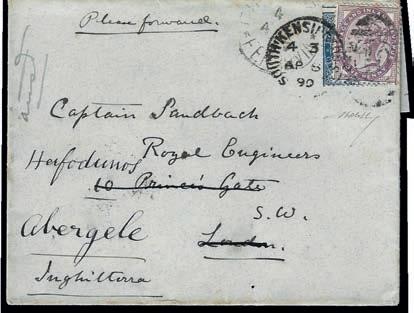 Please forward.
SOUTH KENSI
4 3
AP 8
90
Captain Sandbach
Royal Engineers
Hafodunos
10 Prince's Gate
S.W.
Abergele
London.
Inghilterra